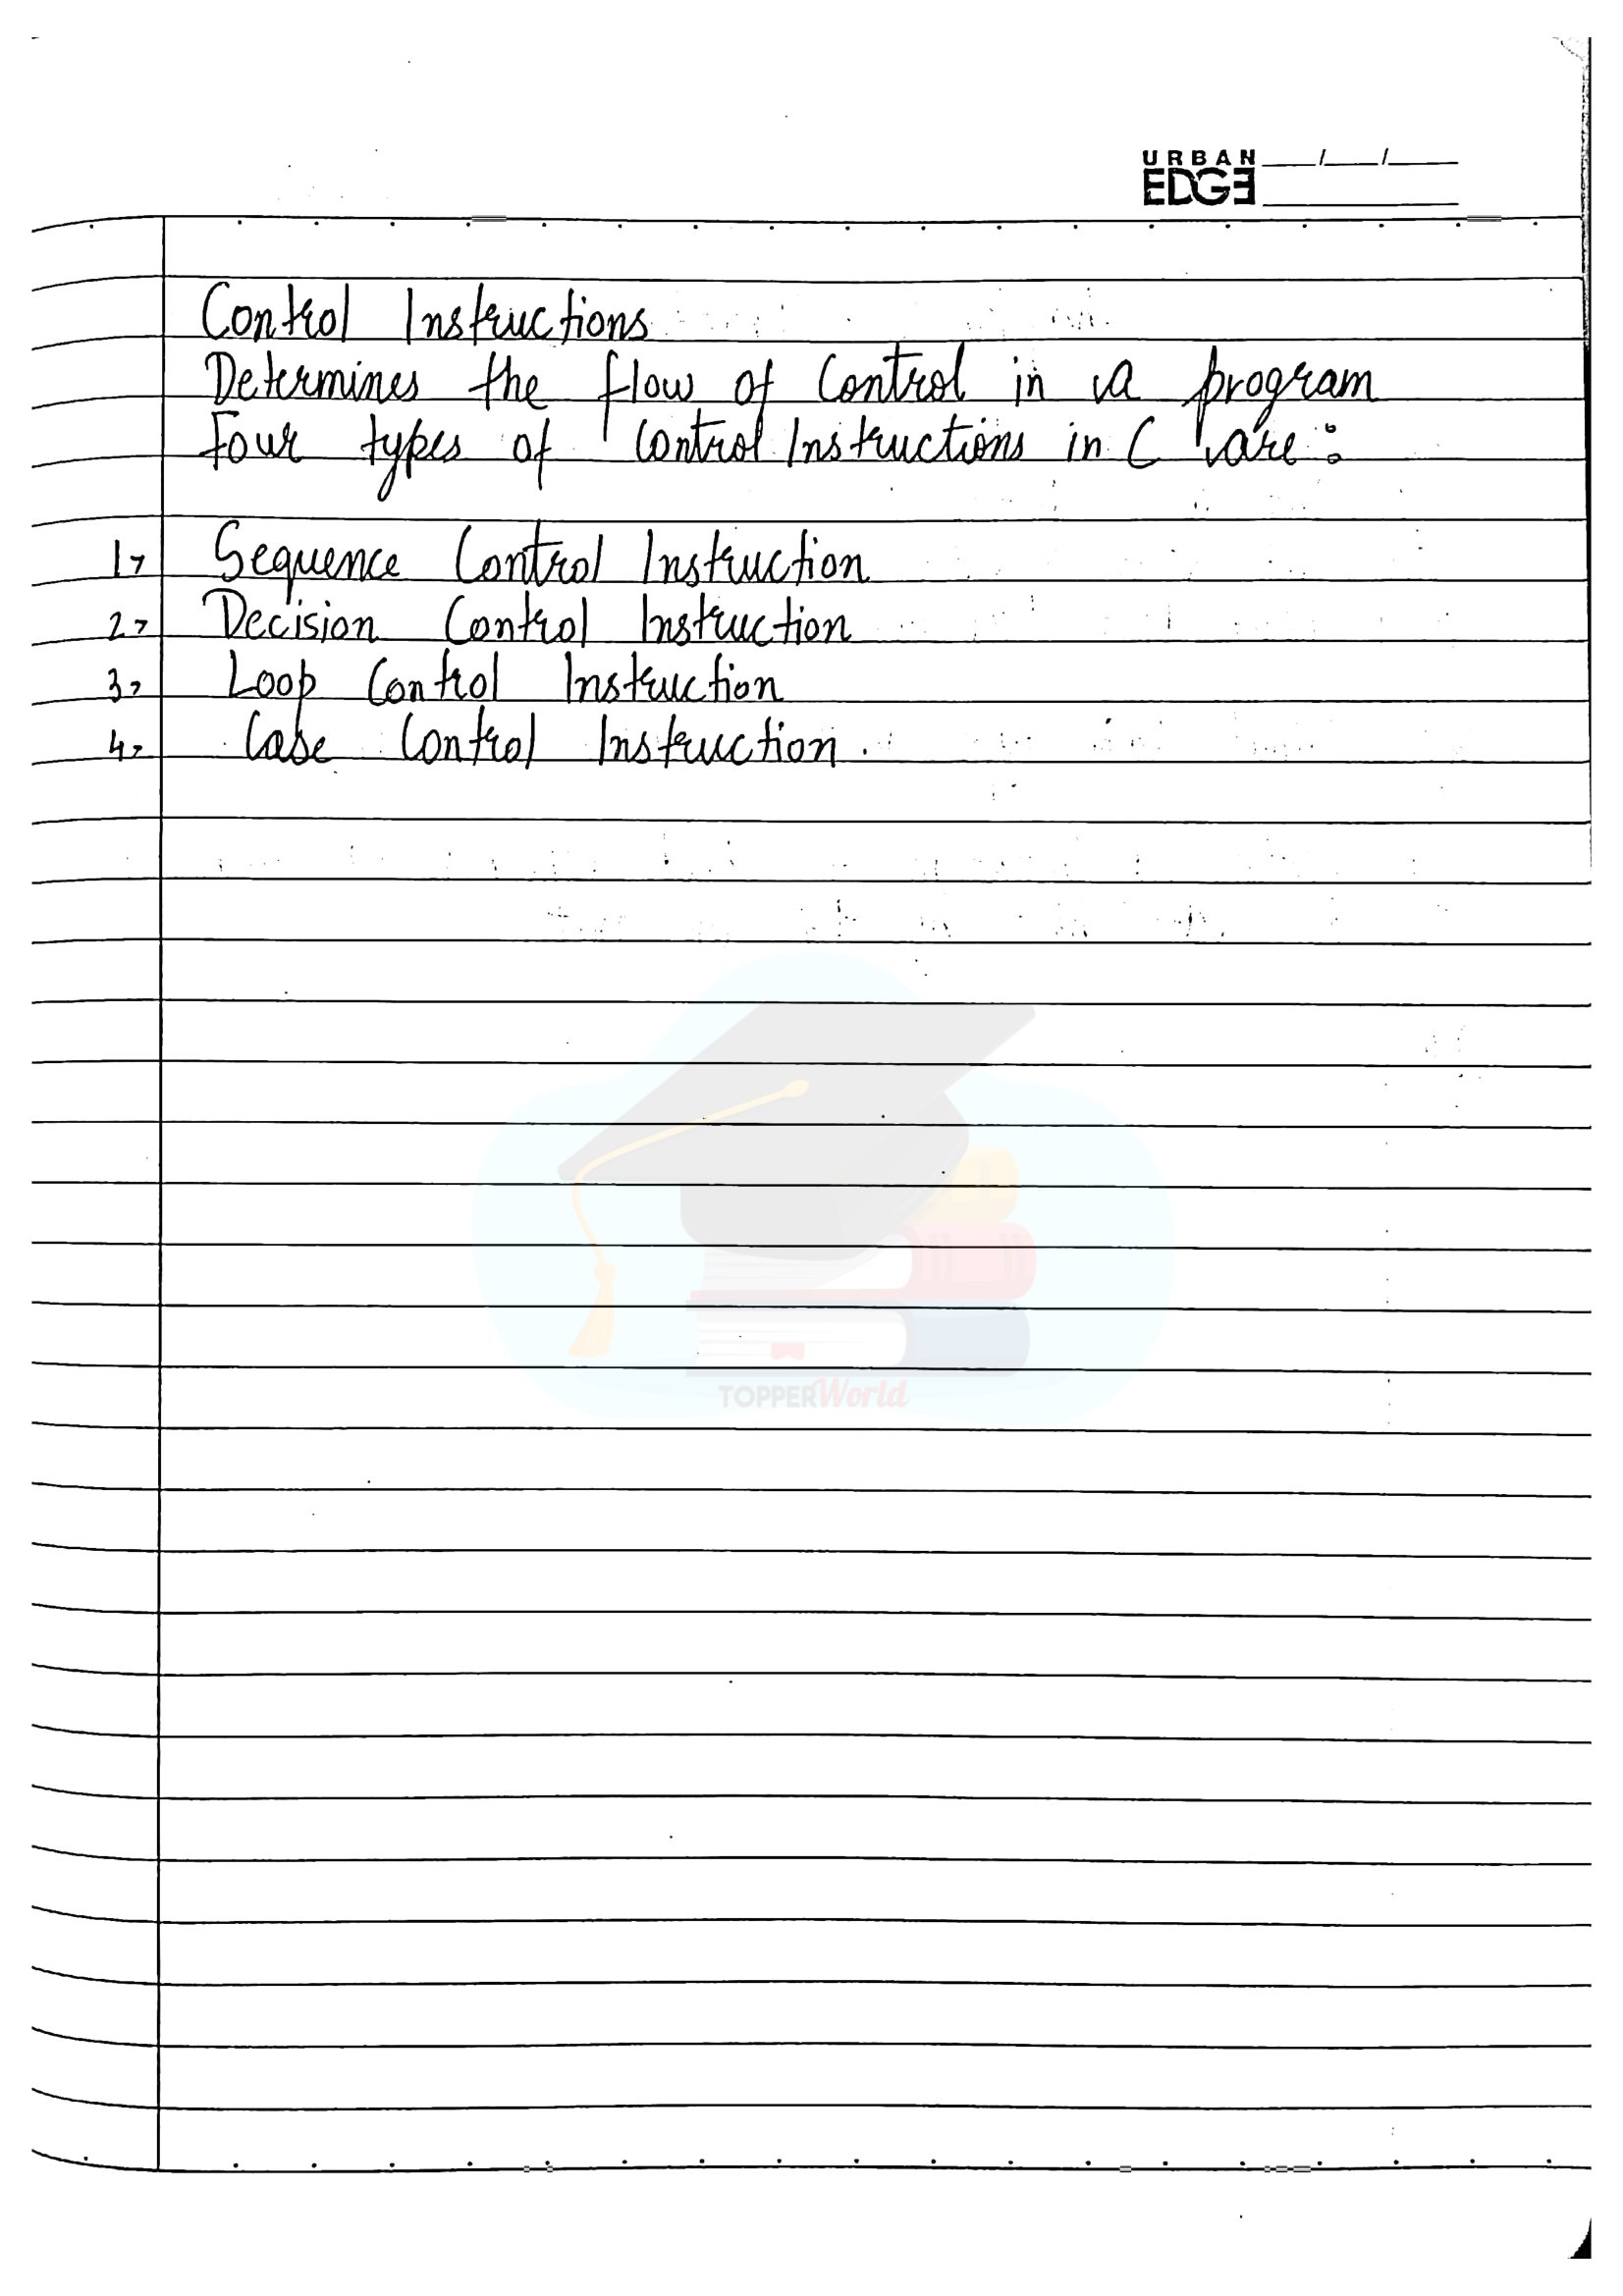 URBAN
EDGE
Control Instructions
Determines the flow of Control in a program
Four types of Control Instructions in C are :
1> Sequence Control Instruction
2> Decision Control Instruction
3> Loop Control Instruction
4> Case Control Instruction.
TOPPERWorld